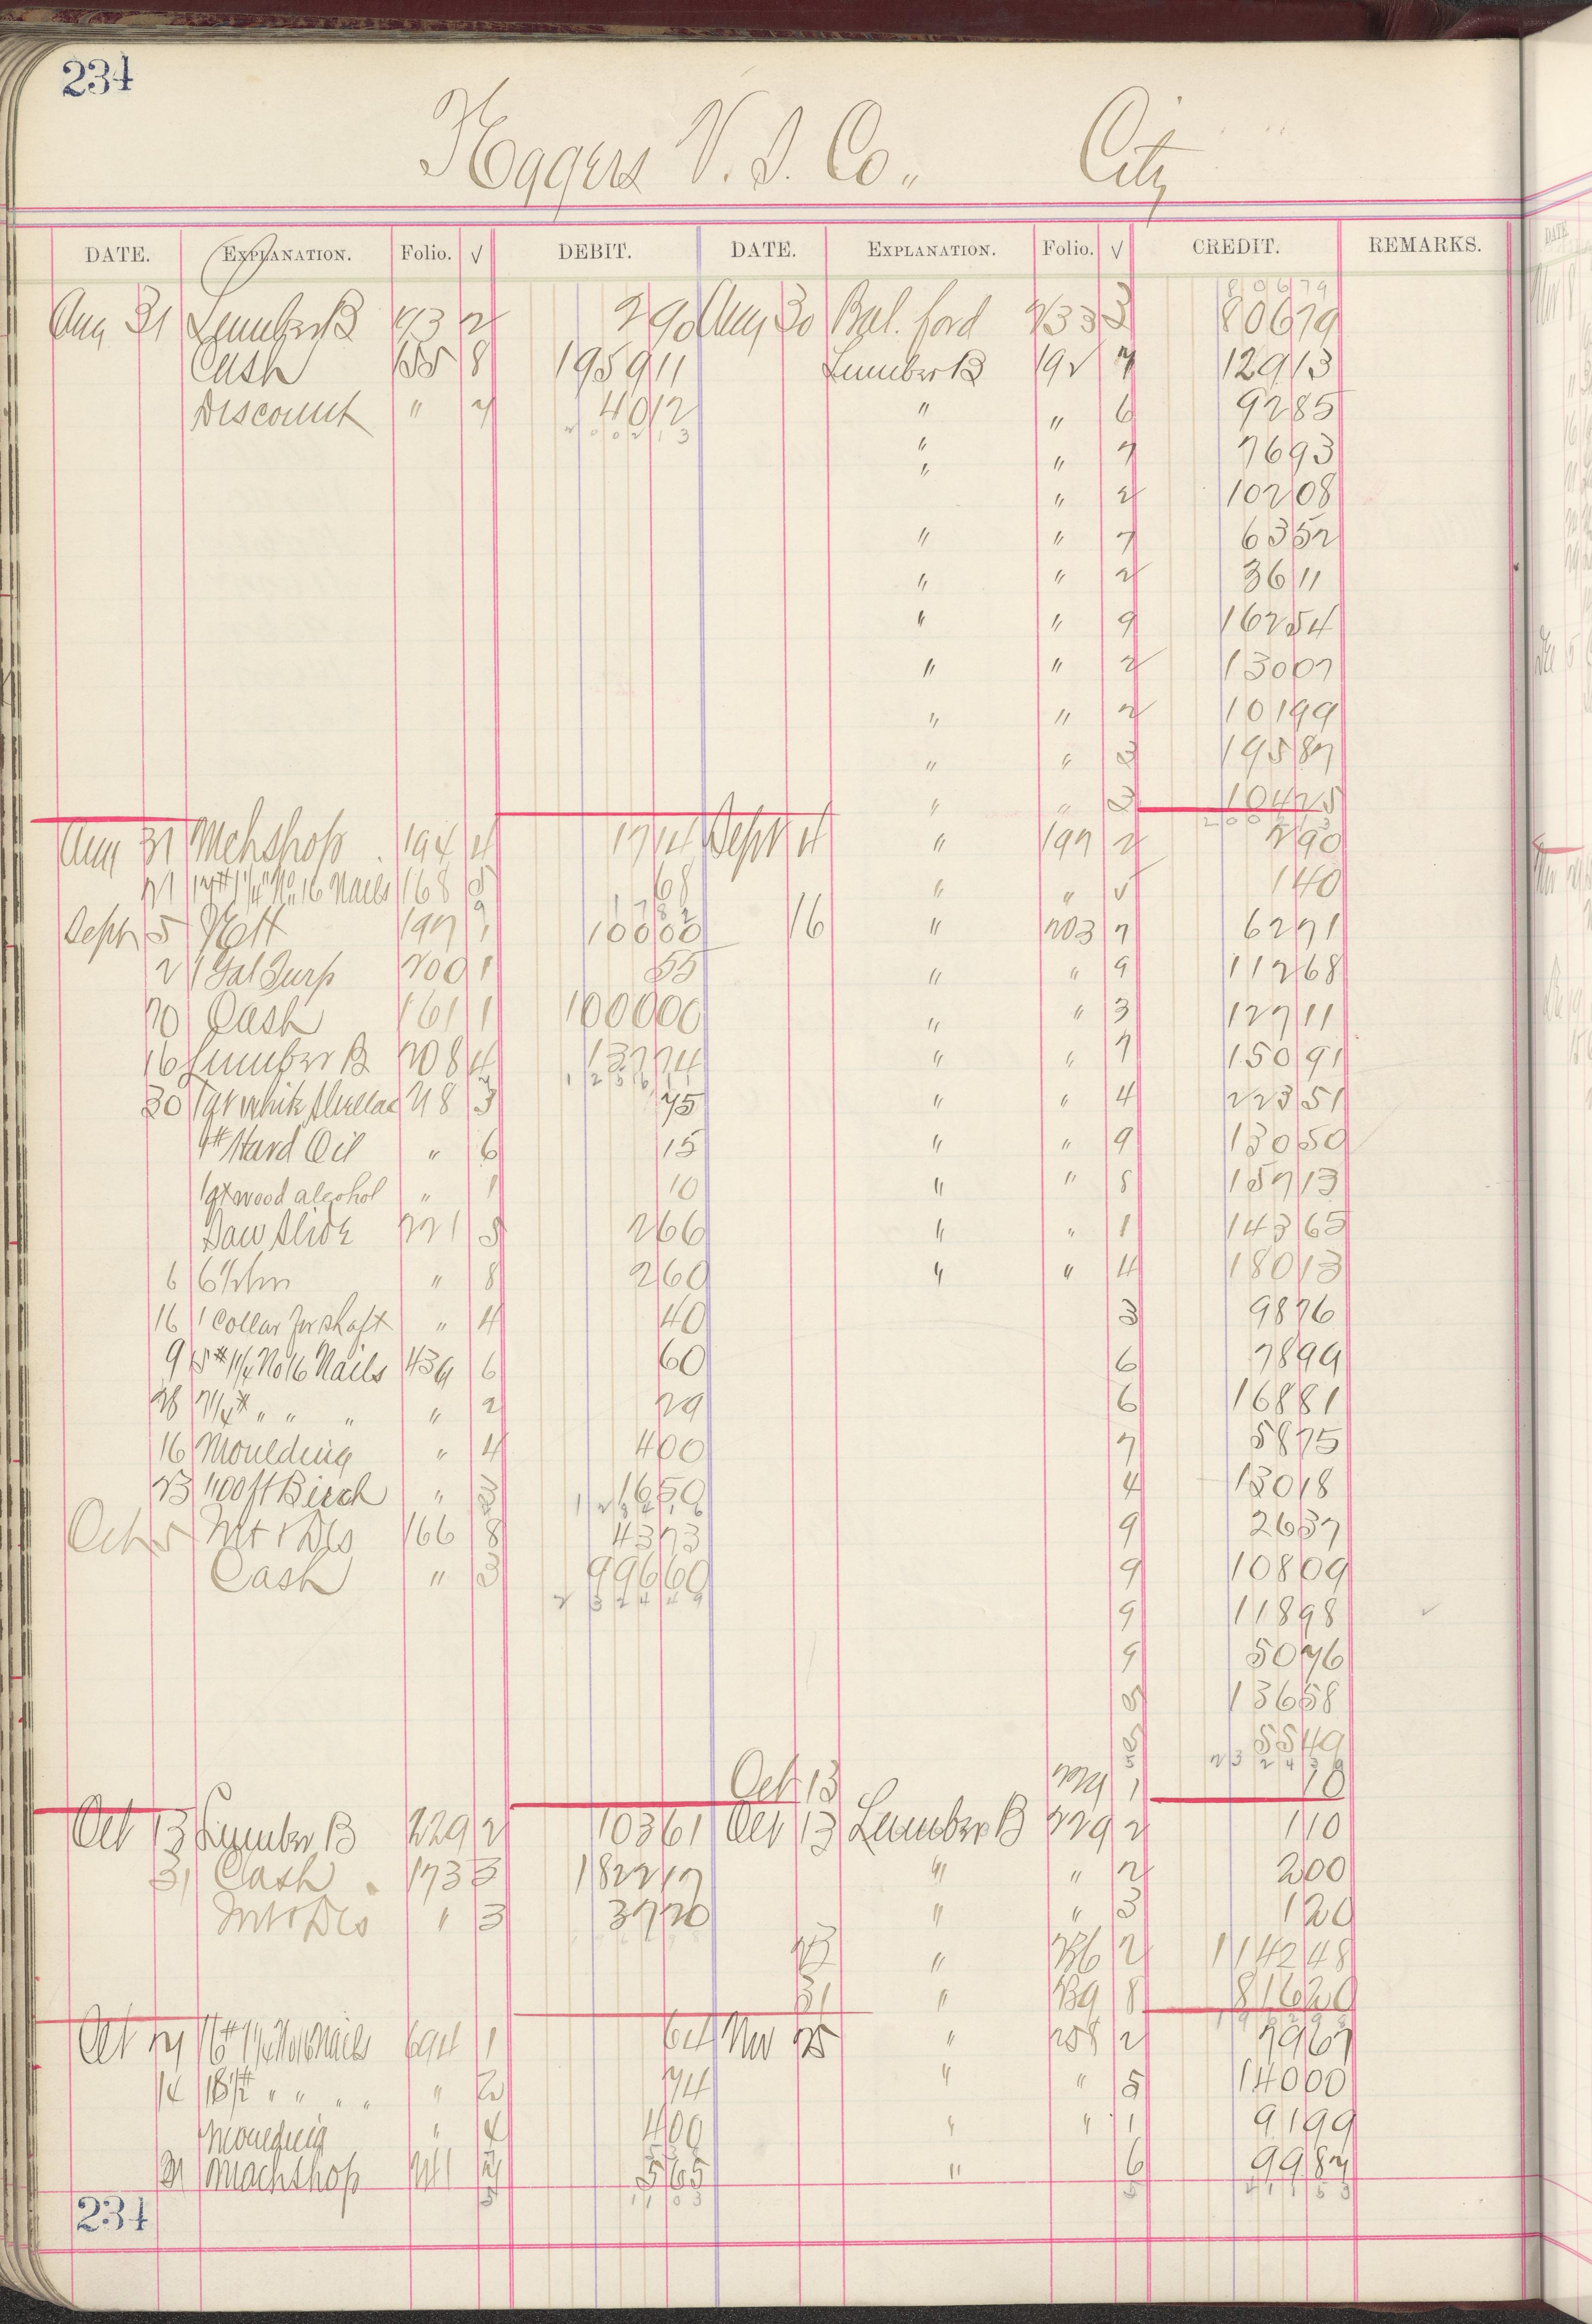 234
Heggers V. S. Co., City
DATE. EXPLANATION. Folio. √ DEBIT. DATE. EXPLANATION. Folio. √ CREDIT. REMARKS.
80679
Aug 31 Lumber B 193 2 290 Aug 30 Bal. ford 233 3 80679
Cash 155 8 195911 Lumber B 192 7 12913
Discount " 7 4012 " " 6 9285
200213 " " 7 7693
" " 2 10208
" " 7 6352
" " 2 3611
" " 9 16254
" " 2 13007
" " 2 10199
" " 3 19587
" " 3 10425
200213
Aug 31 Mchshop 194 4 1714 Sept 4 " 197 2 290
21 17# 1 1/4 No 16 Nails 168 5 68 " " 5 140
1782
Sept 5 Nett 197 1 10000 16 " 203 7 6271
2 1 Gal Turp 200 1 55 " " 9 11268
20 Cash 161 1 100000 " " 3 12711
16 Lumber B 208 4 13774 " " 7 15091
125611
30 1 qt white Shellac 218 3 75 " " 4 22351
1# Hard Oil " 6 15 " " 9 13050
1 qt wood alcohol " 1 10 " " 8 15713
Saw Slide 221 5 266 " " 1 14365
6 6 " 8 260 " " 4 18013
16 1 Collar for shaft " 4 40 3 9876
9 15# 1 1/4 No 16 Nails 439 6 60 6 7899
28 7 1/4# " " " " 2 29 6 16881
16 Moulding " 4 400 7 5875
23 1100 ft Birch " 3 1650 4 13018
Oct 5 Int & Dis 166 8 4373 9 2637
Cash " 3 99660 9 10809
232449
9 11898
9 5076
5 13658
5 5549
232439
Oct 13 229 1 10
Oct 13 Lumber B 229 2 10361 Oct 13 Lumber B 229 2 110
31 Cash 173 3 182217 " " 2 200
Int & Dis " 3 3720 " " 3 120
23 " 236 2 114248
31 " 239 8 81620
Oct 21 16# 1 1/4 No 16 Nails 694 1 64 Nov 25 " 258 2 7967
14 18 1/2# " " " " " 2 74 " " 5 14000
Moulding " 4 400 " " 1 9199
31 Machshop 241 7 565 " 6 9987
1103 41153
234